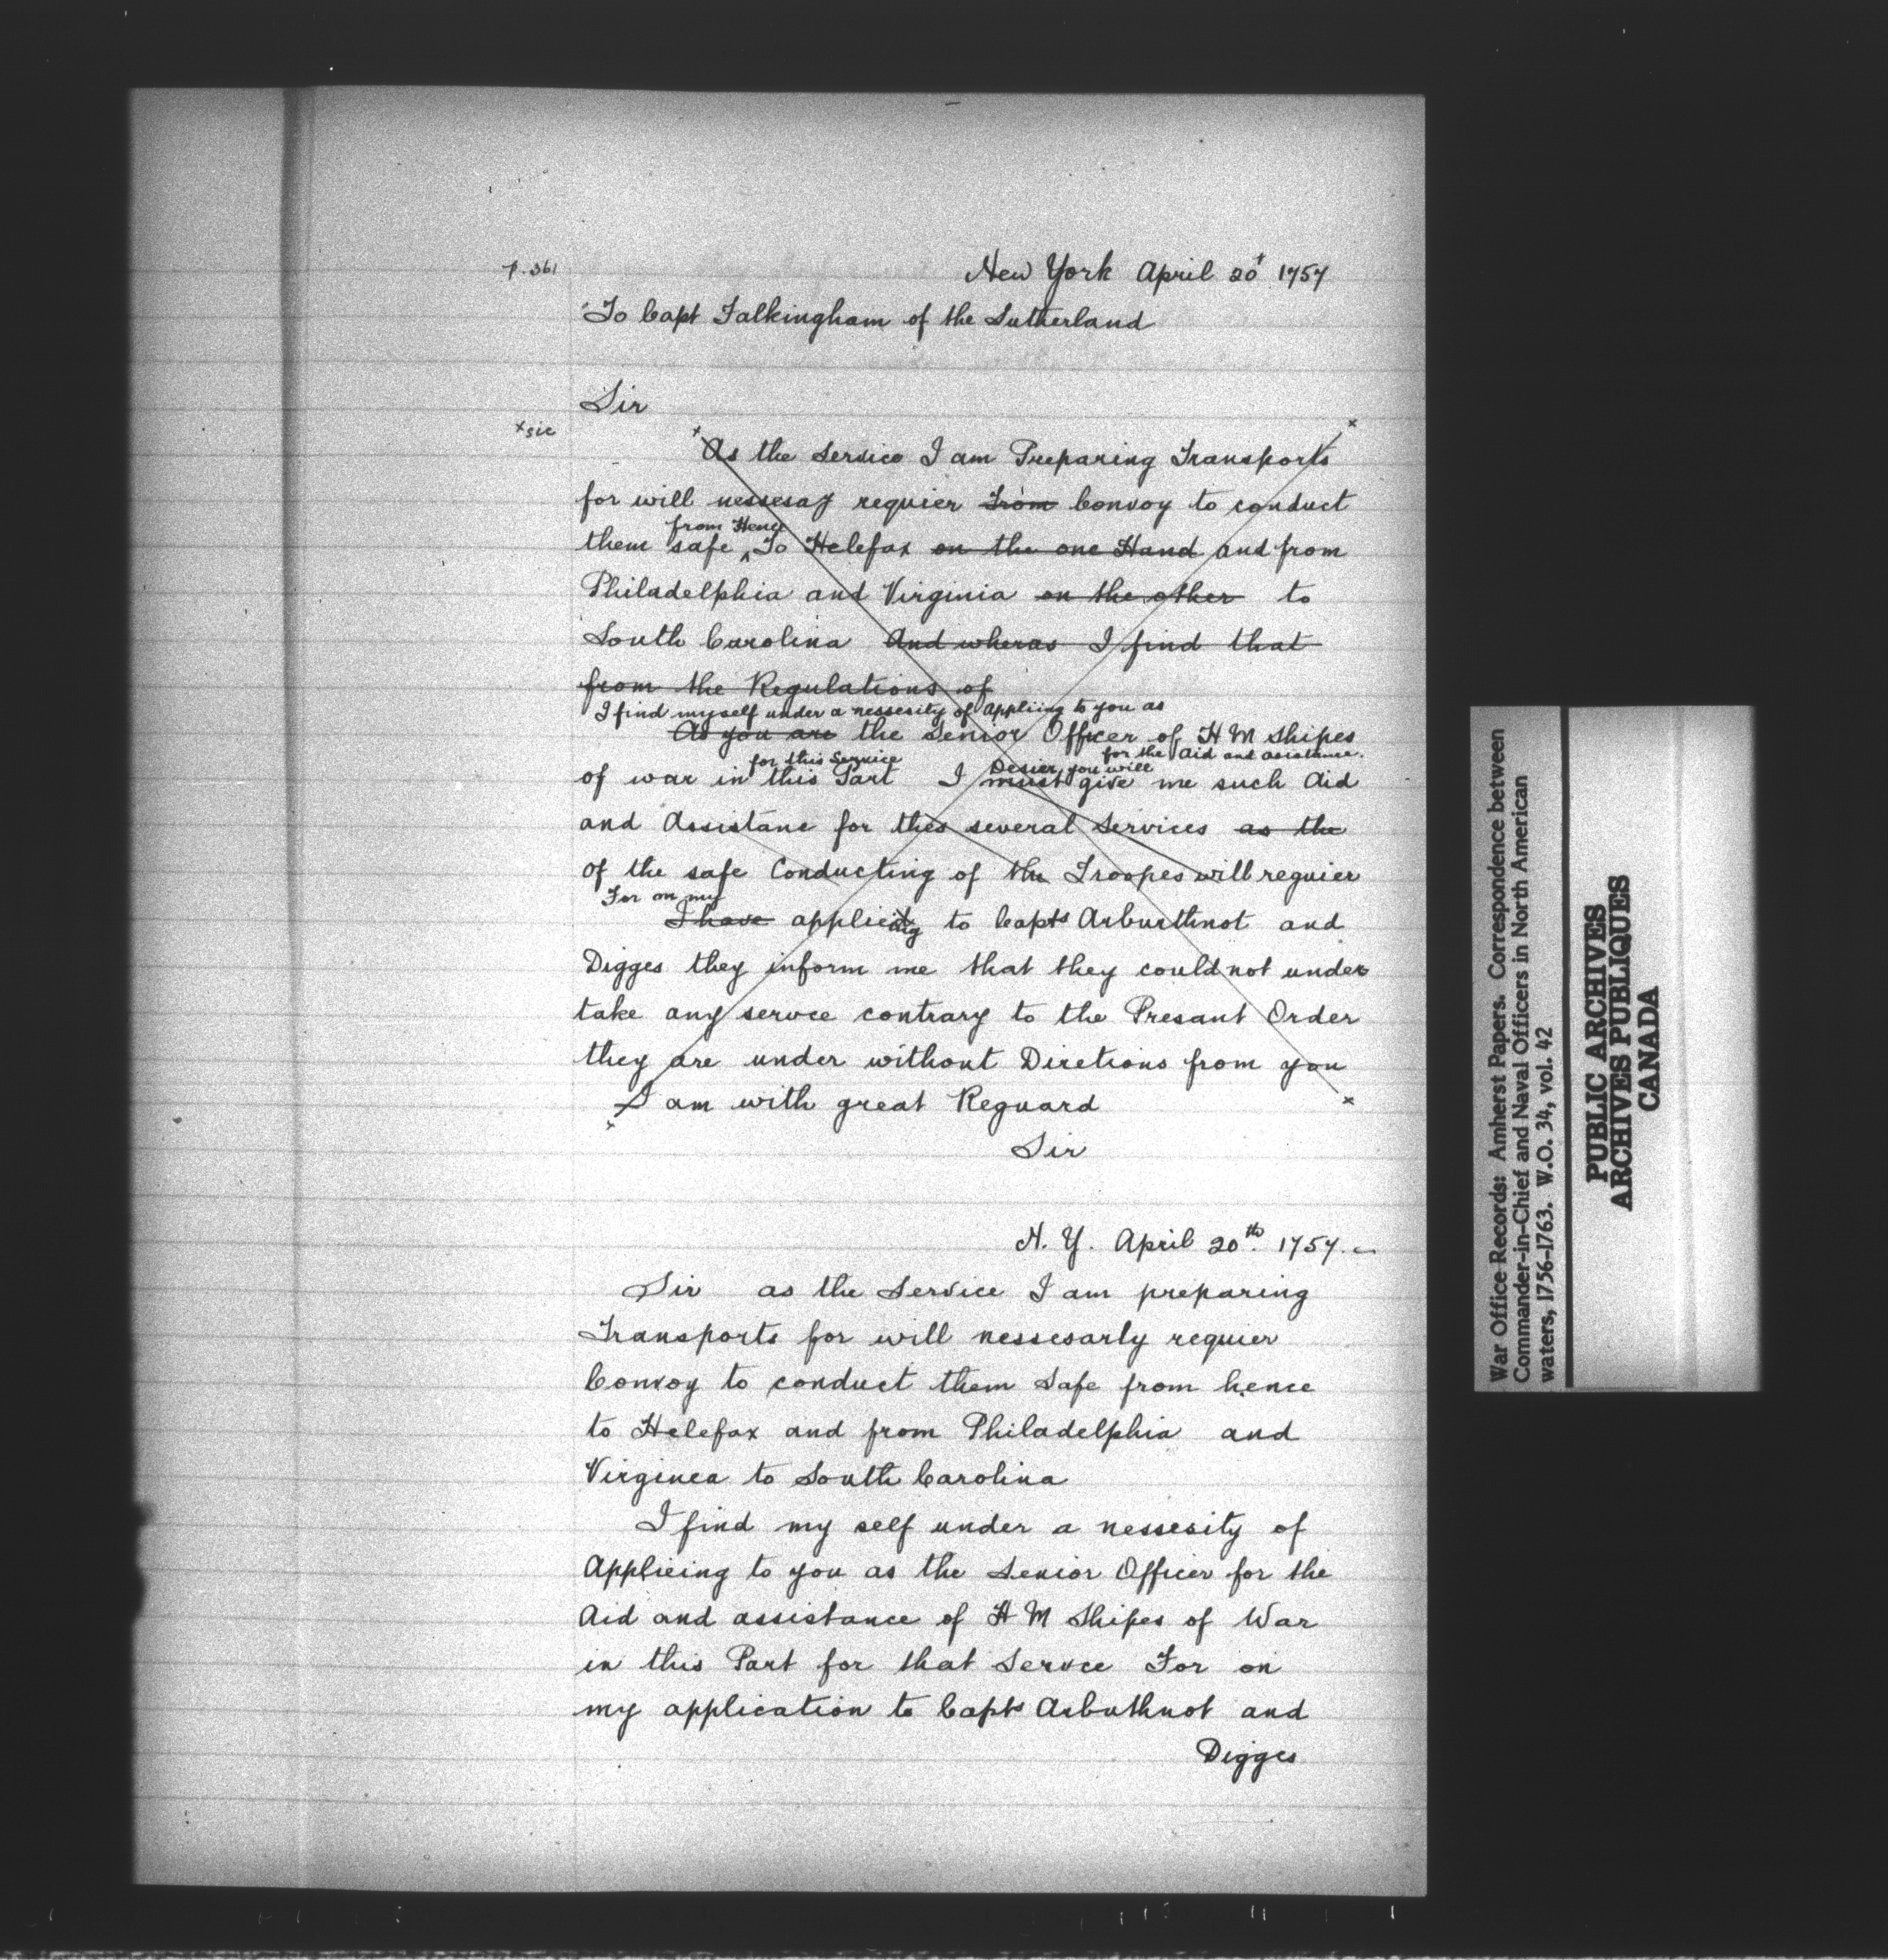 p. 361
New York April 20t 1757
To Capt Falkingham of the Sutherland
Sir
x sic
x As the Service I am Preparing Transports x
for will nessesay requier From Convoy to conduct
from Hence
them safe ^ To Helefax on the one Hand and from
Philadelphia and Virginia on the other to
South Carolina And wheras I find that
from the Regulations of
I find myself under a nessesity of appliing to you as
As you are the Senior Officer of H M Shipes
for this Service for the Aid and assistance.
of war in this Part I must give me such Aid
Desier you will
and Assistane for thes several Services as the
of the safe Conducting of the Troopes will requier
For on my
I have applieing to Capts Arburthnot and
Digges they inform me that they could not under
take any servce contrary to the Presant Order
they are under without Diretions from you
I am with great Reguard x
x
Sir
N. Y. April 20th. 1757. -
Sir as the Service I am preparing
Transports for will nessesarly requier
Convoy to conduct them safe from hence
to Helefax and from Philadelphia and
Virginea to South Carolina
I find my self under a nessesity of
Applieing to you as the Senior Officer for the
Aid and assistance of H M Shipes of War
in this Part for that Servce For on
my application to Capts Arbuthnot and
Digges
War Office Records: Amherst Papers. Correspondence between
Commander-in-Chief and Naval Officers in North American
waters, 1756-1763. W.O. 34, vol. 42
PUBLIC ARCHIVES
ARCHIVES PUBLIQUES
CANADA